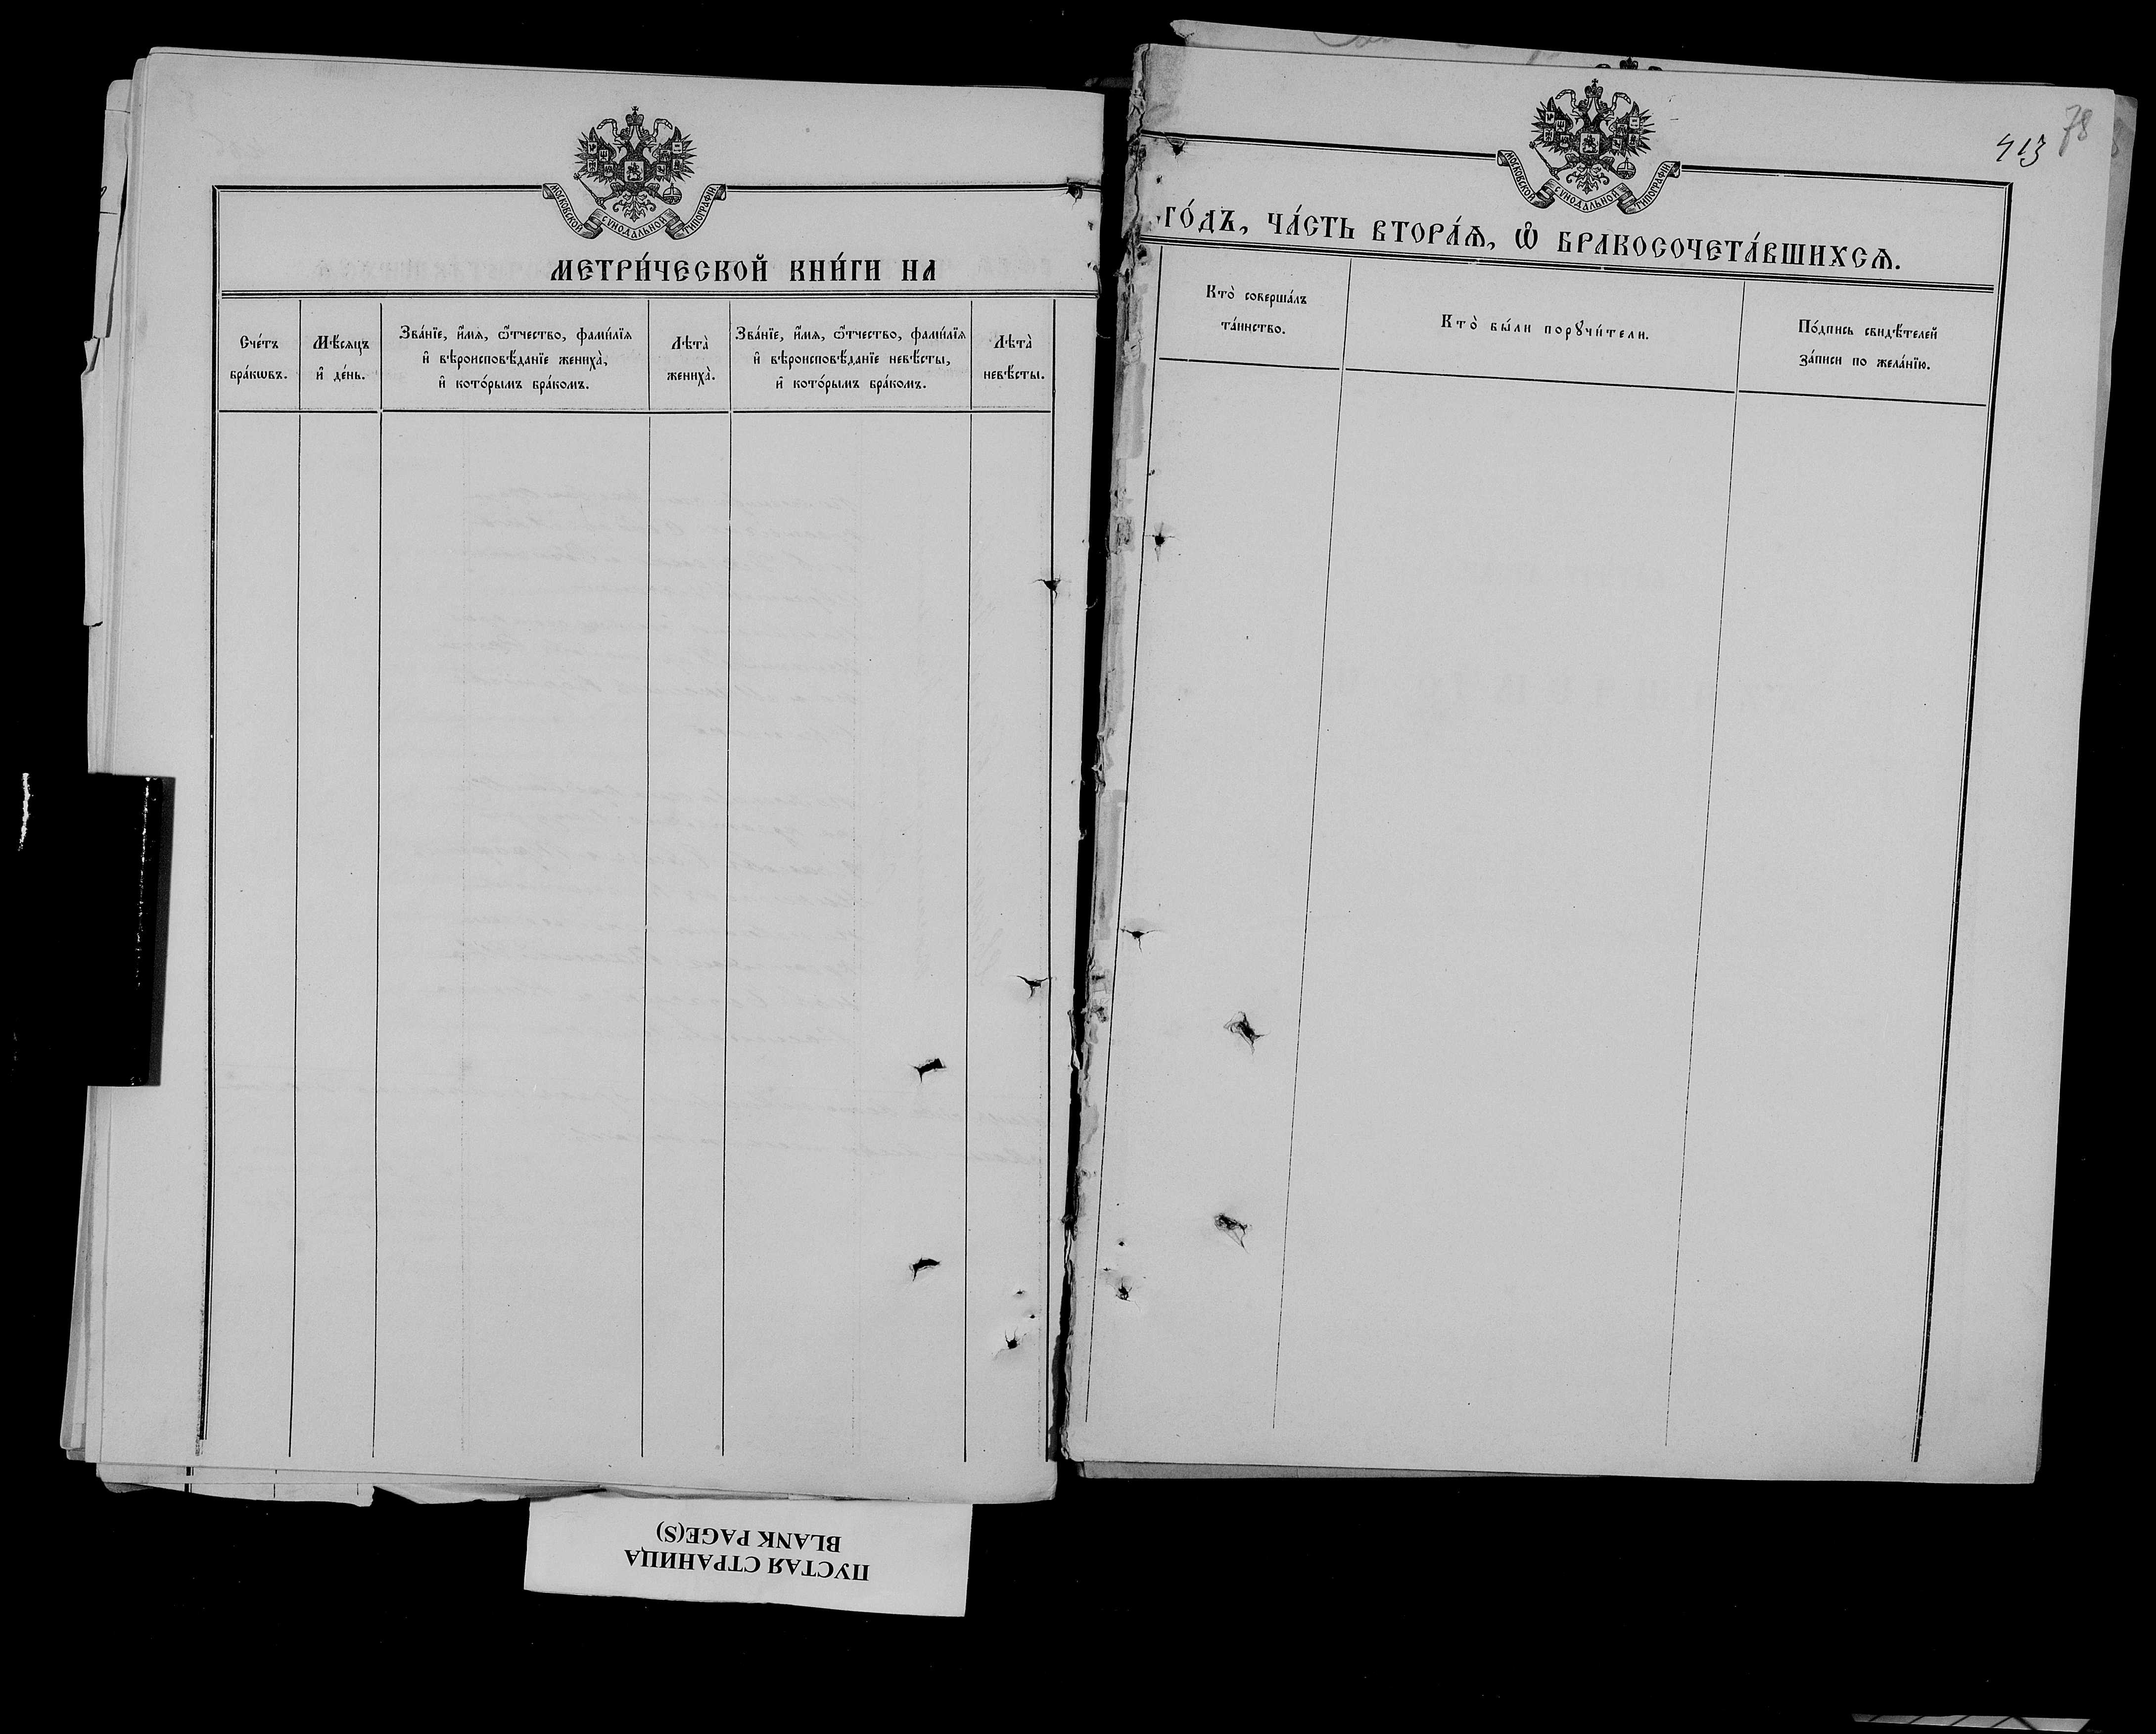 МОСКОВСКОЙ СѴНОДАЛЬНОЙ ТИПОГРАФІИ
МЕТРИ́ЧЕСКОЙ КНИ́ГИ НА
Сче́тъ
бра́кѡвъ.
Мѣ́сѧцъ
и҆ де́нь.
Зва́нїе, и҆́мѧ, ѻ҆́тчество, фами́лїѧ
и҆ вѣроисповѣ́данїе жениха̀,
и҆ кото́рымъ бра́комъ.
Лѣта̀
жениха̀.
Зва́нїе, и҆́мѧ, ѻ҆́тчество, фами́лїѧ
и҆ вѣроисповѣ́данїе невѣ́сты,
и҆ кото́рымъ бра́комъ.
Лѣта̀
невѣ́сты.
78
413
МОСКОВСКОЙ СѴНОДАЛЬНОЙ ТИПОГРАФІИ
ГО́ДЪ, ЧА́СТЬ ВТОРА́Ѧ, Ѽ БРАКОСОЧЕТА́ВШИХСѦ.
Кто̀ соверша́лъ
та́инство.
Кто̀ бы́ли порꙋчи́тели.
По́дпись свидѣ́телей
за́писи по жела́нїю.
ПУСТАЯ СТРАНИЦА
BLANK PAGE(S)